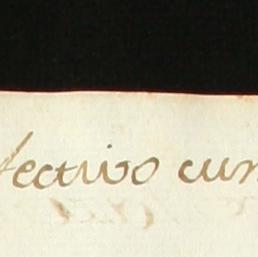 fectivo cum